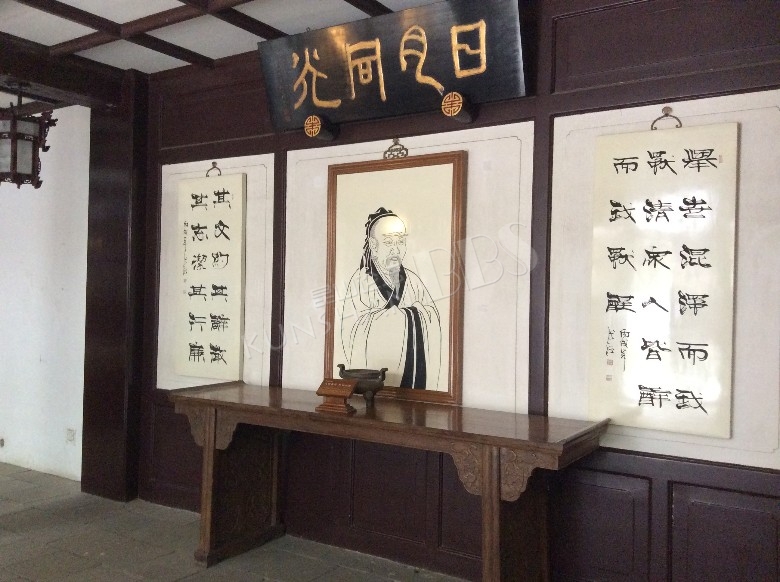 日月同光
舉世混濁而我
獨清衆人皆醉
而我獨醒
丙戌年
其文約其辭微
其志潔其行廉